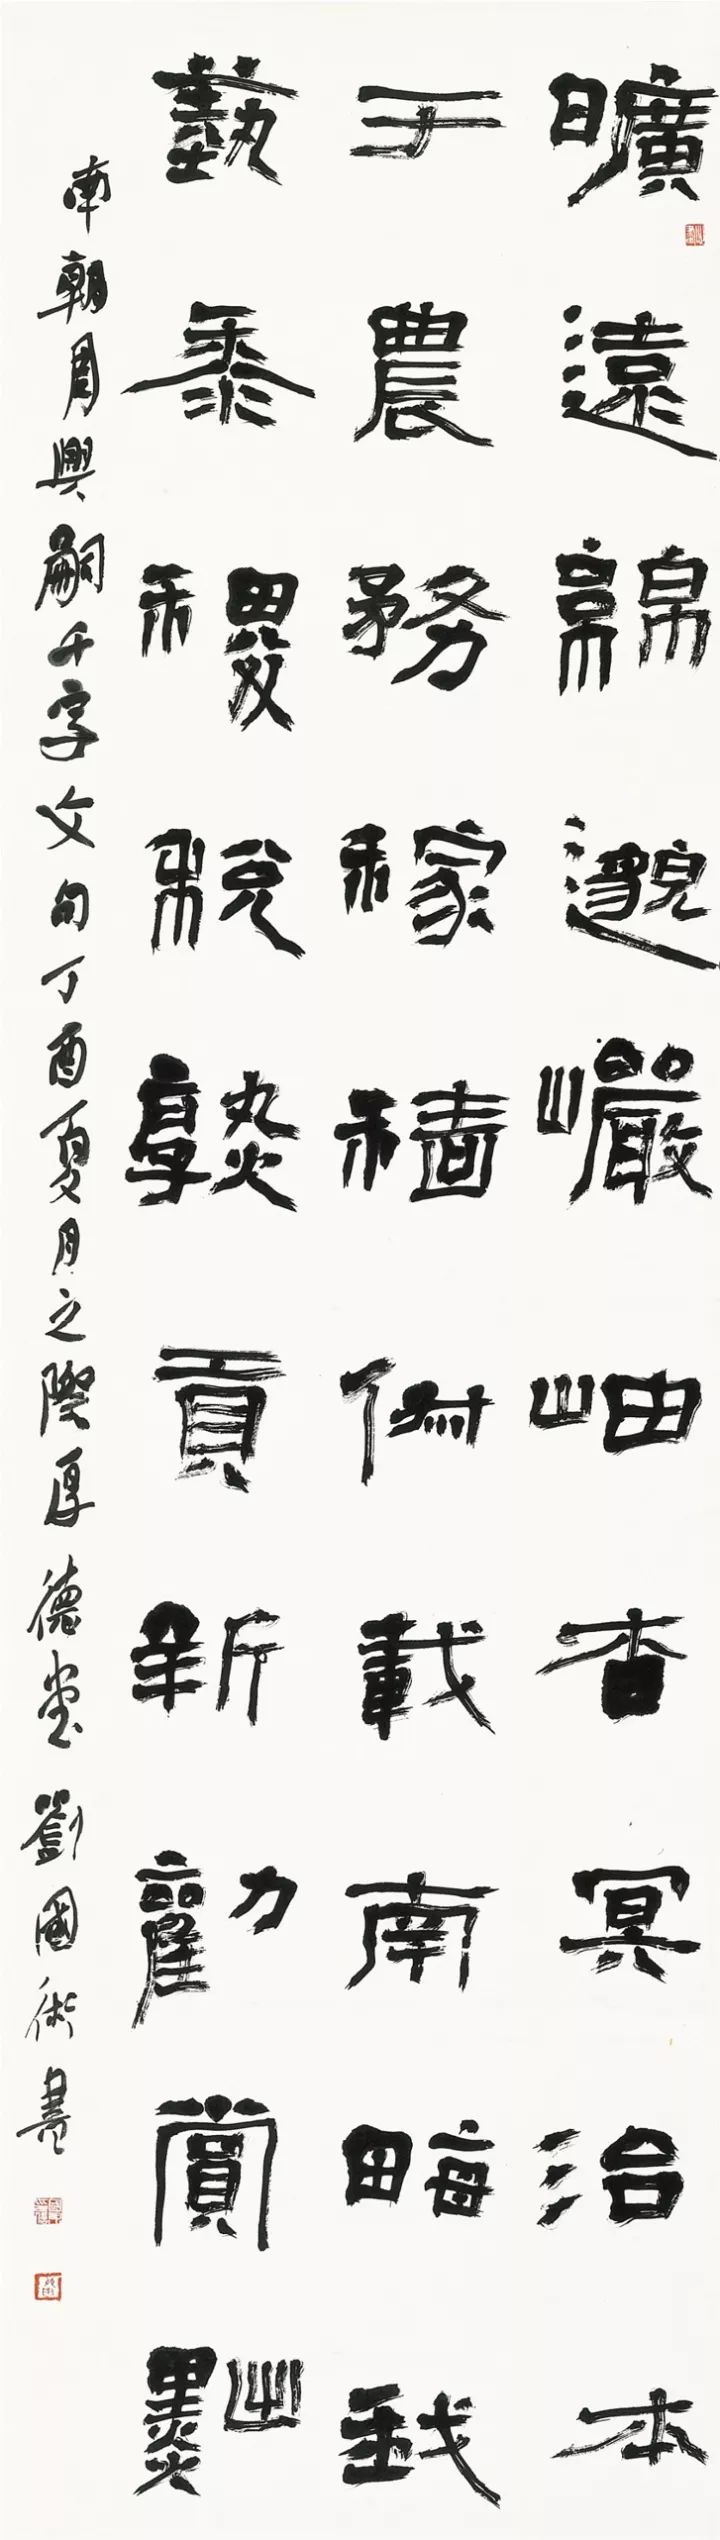 曠遠綿邈巗岫杳冥治本
于農務稼穡俶載南畮我
蓺黍稷稅熟貢新勸賞黜
南朝周興嗣千字文句丁酉夏月之際厚德堂劉國術書